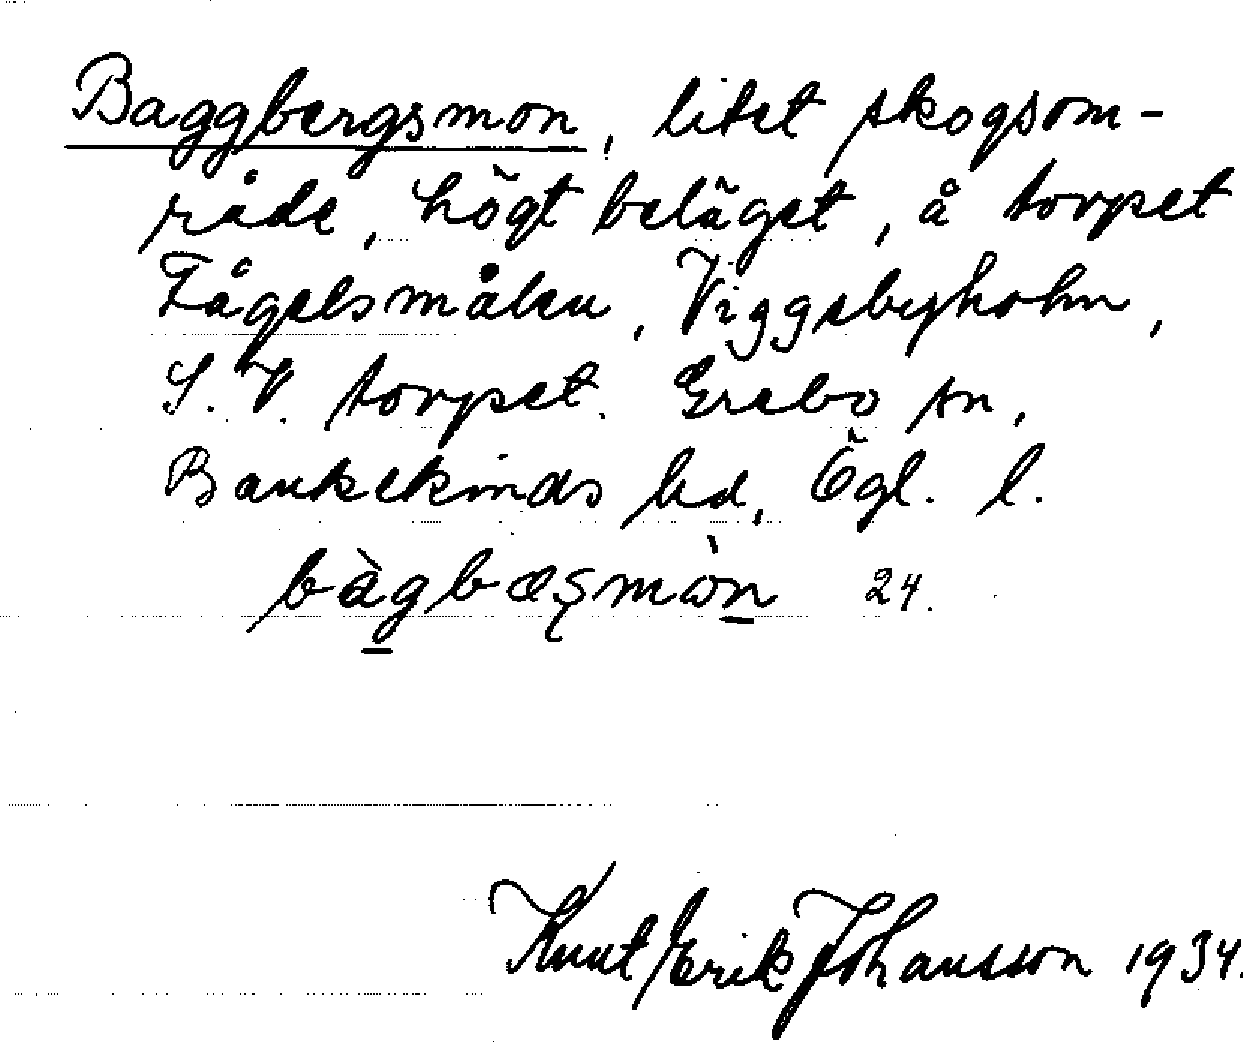 Baggbergsmon, litet skogsom-
råde, högt beläget, å torpet
Fågelsmålen, Viggebyholm,
S.V. torpet. Grebo sn,
Bankekinds hd, Ögl. l.
24.
Knut Erik Johansson 1934.